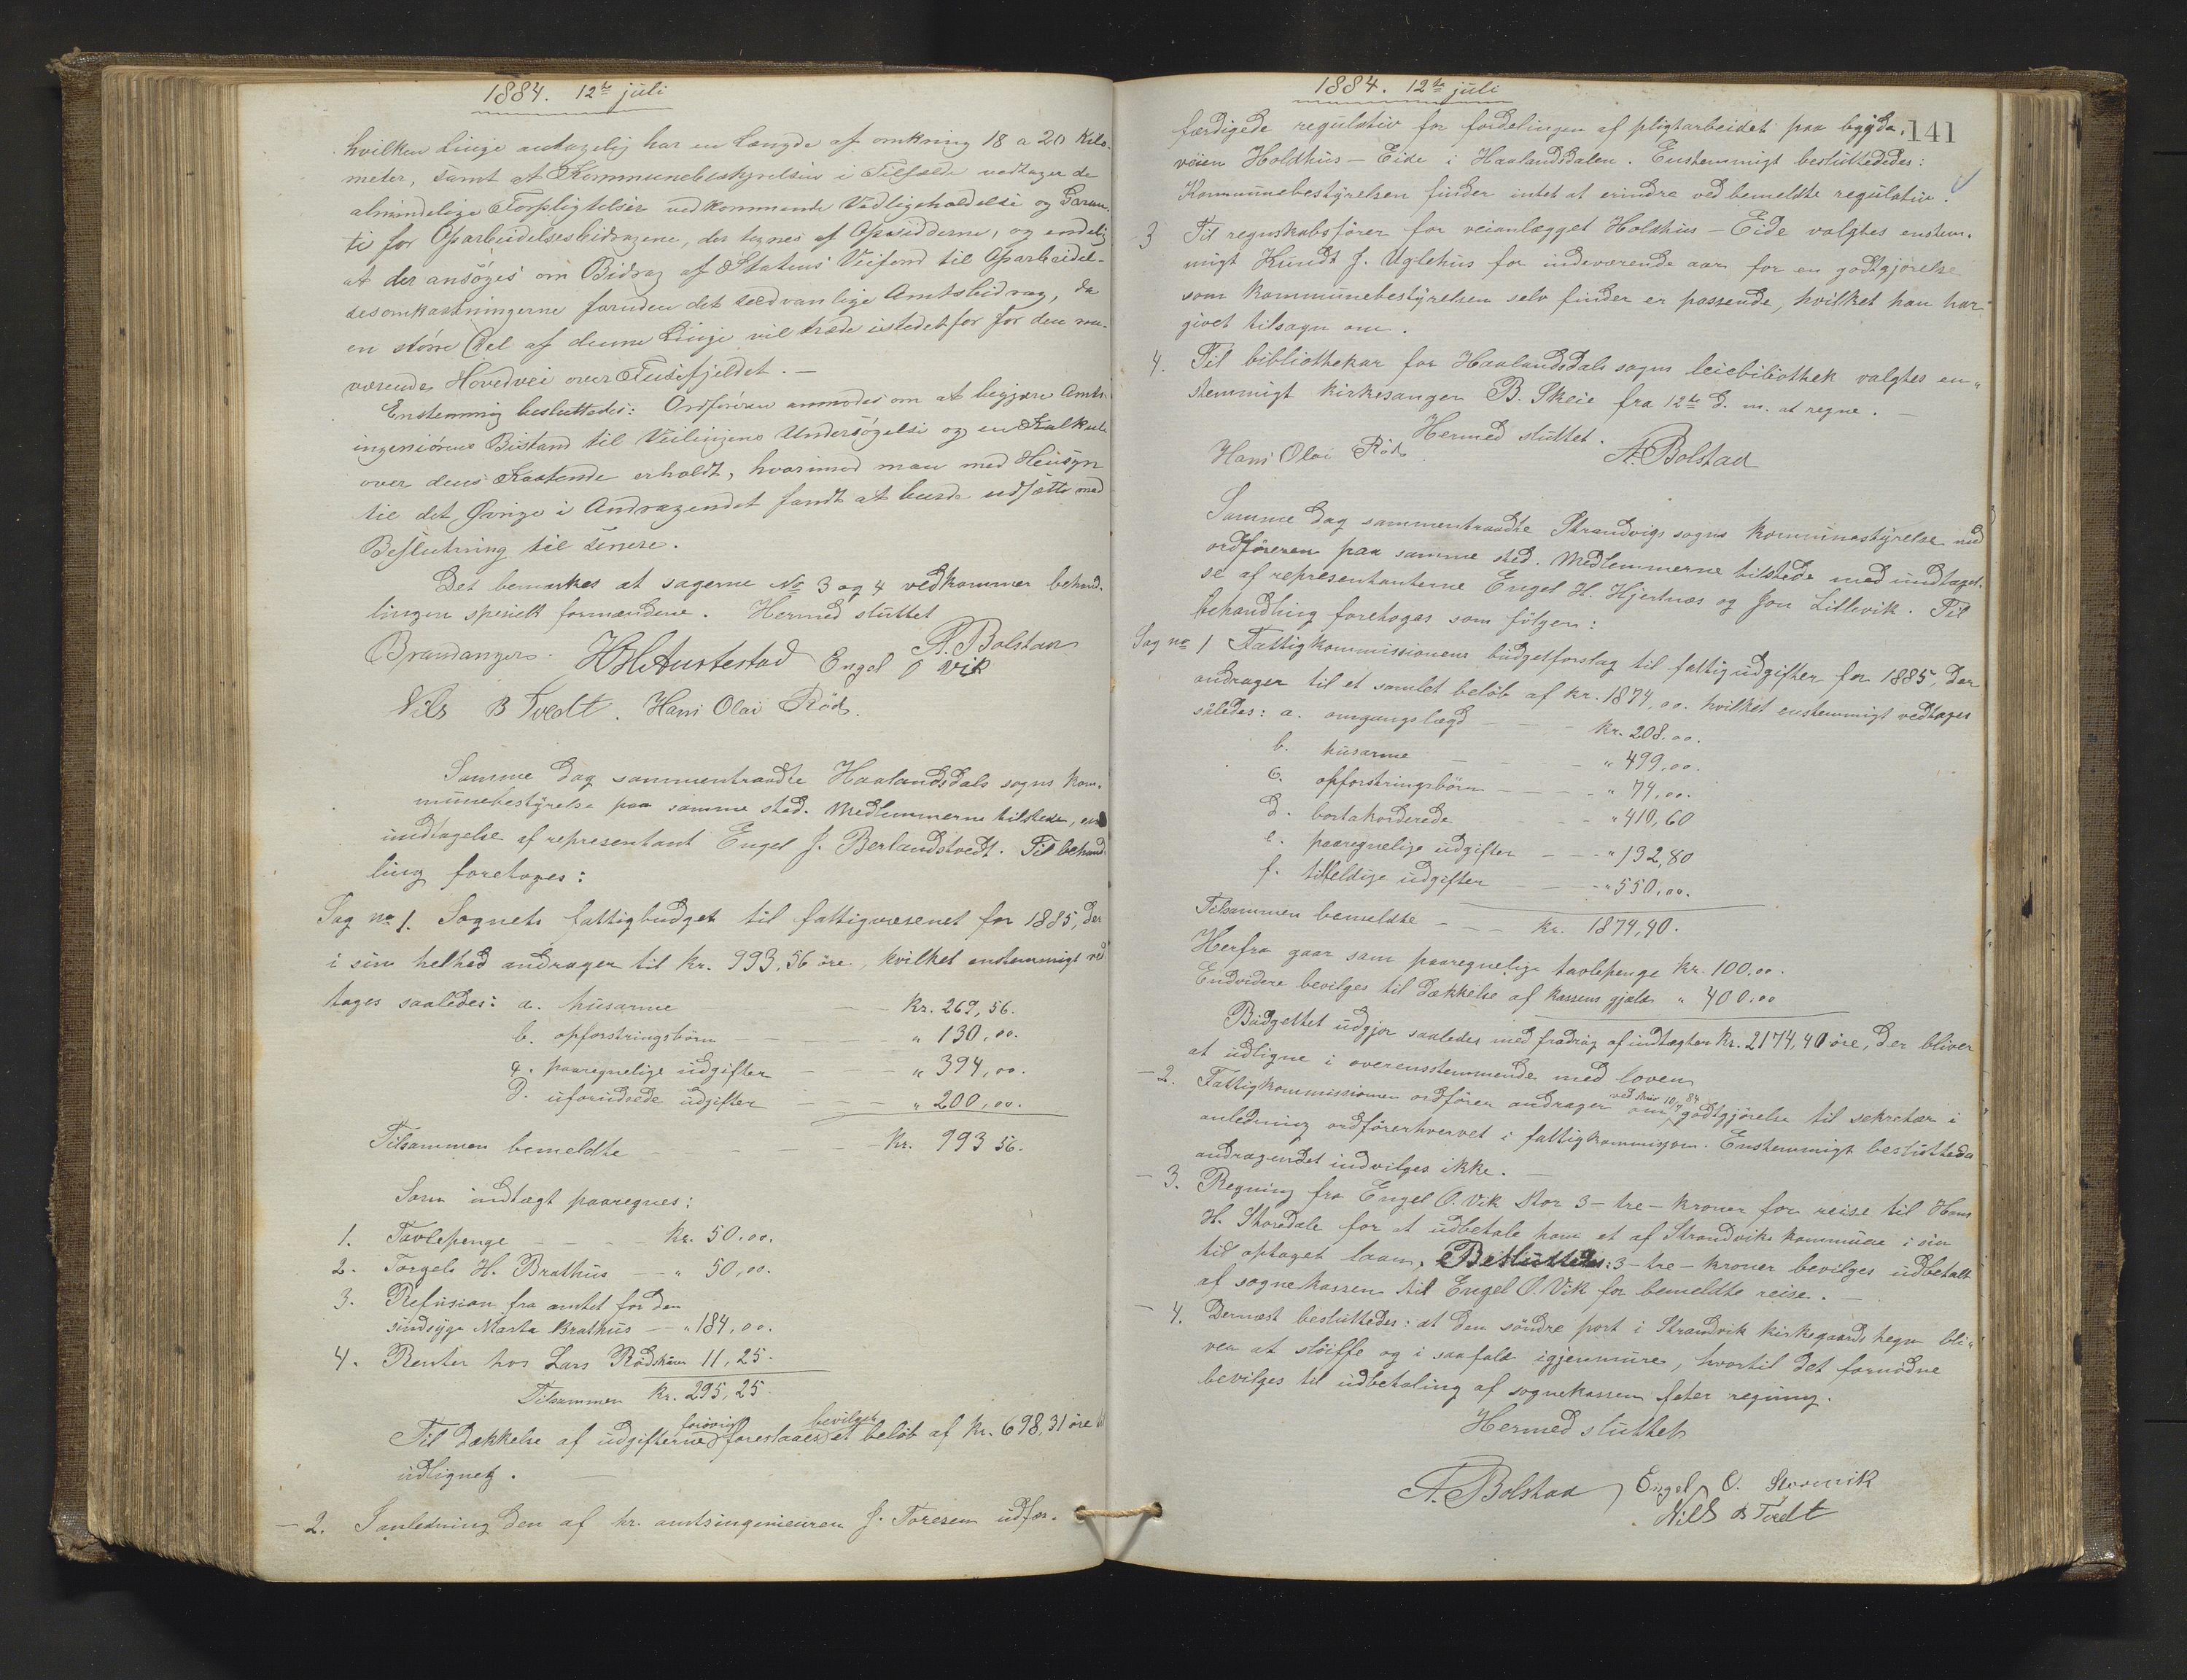 1884. 12te juli
hvilken Linje antagelig har en Længde af omkring 18 a 20 Kilo-
meter, samt at Kommunebestyrelsen i Tilfælde vedtager de
almindelige Forpligtelser vedkommende Vedligeholdelse og Garan-
ti for Oparbeidelsesbidragene, der tegnes af Opsidderne, og endelig
at der ansøges om Bidrag af Statens Veifond til Oparbeidel-
sesomkostningerne foruden det sedvanlige Amtsbidrag, da
en større Del af denne Linje vil træde istedetfor for den nu-
værende Hovedvei over Fusefjeldet. —
Enstemmig besluttedes: Ordføreren anmodes om at begjære Amts-
ingeniørens Bistand til Veilinjens Undersøgelse og en Kalkule
over dens Kostende erholdt, hvorimod man med Hensyn
til det Øvrige i Andragendet fandt at burde udsætte med
Beslutning til senere.
Det bemærkes at sagerne No 3 og 4 vedkommer behand-
lingen specielt formændene. Hermed sluttet
A. Bolstad
Brandanger. H H Austestad Engel O Vik
Nils B Tvedt. Hans Olai Röd.
Samme dag sammentraadte Haalandsdals sogns kom-
munebestyrelse paa samme sted. Medlemmerne tilstede, med
undtagelse af representant Engel J. Berlandstvedt. Til behand-
ling foretoges:
Sag no 1. Sognets fattigbudget til fattigvæsenet for 1885, der
i sin helhed andrager til kr. 993,56 øre, hvilket enstemmigt ved
tages saaledes: a. husarme — kr. 269,56.
b. opfostringsbørn — " 130,00.
c. paaregnelige udgifter — " 394,00.
d. uforudsede udgifter — " 200,00.
Tilsammen bemeldte — kr. 993 56.
Som indtægt paaregnes:
1. Tavlepenge — kr. 50.00.
2. Torgels H. Brathus — " 50,00.
3. Refusion fra amtet for den
sindsyge Marta Brathus — " 184,00.
4. Renter hos Lars Rødskaun 11,25.
Tilsammen kr. 295,25.
forøvrigt bevilget
Til dækkelse af udgifterne foreslaaes et beløb af kr. 698,31 øre
udlignet.
— 2. I anledning den af hr. amtsingeniøren J. Foresen udfær-
1884. 12te juli
141
færdigede regulativ for fordelingen af pligtarbeidet paa bygde-
veien Holdhus – Eide i Haalandsdalen. Enstemmigt besluttededes:
Kommunebestyrelsen finder intet at erindre ved bemeldte regulativ.
3 Til regnskabsfører for veianlægget Holdhus – Eide valgtes enstem-
migt Knudt J. Uglehus for indeværende aar for en godtgjørelse
som kommunebestyrelsen selv finder er passende, hvilket han har
givet tilsagn om.
4. Til bibliothekar for Haalandsdals sogns leiebibliothek valgtes en-
stemmigt kirkesanger B. Skeie fra 12te d. m. at regne. —
Hermed sluttet.
Hans Olai Röd A. Bolstad
Samme dag sammentraadte Strandvigs sogns kommunestyrelse med
ordføreren paa samme sted. Medlemmerne tilstede med undtagel-
se af representanterne Engel H. Hjertnæs og Jon Lillevik. Til
behandling foretoges som følger:
Sag no 1 Fattigkommissionens budgetforslag til fattigudgifter for 1885, der
andrager til et samlet beløb af kr. 1874,00. hvilket enstemmigt vedtages
således: a. omgangslægd — kr. 208.00.
b. husarme — " 499,00.
c. opfostringsbørn — " 74,00.
d. bortakorderede — " 410,60
e. paaregnelige udgifter — " 132,80
f. tilfeldige udgifter — " 550,00.
Tilsammen bemeldte — kr. 1874,40.
Herfra gaar som paaregnelige tavlepenge kr. 100,00.
Endvidere bevilges til dækkelse af kassens gjæld " 400,00
Budgettet udgjør saaledes med fradrag af indtægten kr. 2174,40 øre, der bliver
at udligne i overensstemmende med loven
ved skriv 10/7 84
— 2. Fattigkommissionen ordfører andrager om godtgjørelse til sekretær i
anledning ordførerhvervet i fattigkommisjon. Enstemmigt besluttedes
andragendet indvilges ikke. —
— 3. Regning fra Engel O. Vik stor 3 – tre – kroner for reise til Hans
H. Skoredale for at udbetale ham et af Strandviks kommune i sin
tid optaget laan, Besluttedes: 3 – tre – kroner bevilges udbetalt
af sognekassen til Engel O. Vik for bemeldte reise. —
— 4. Dernæst besluttedes: at den søndre port i Strandvik kirkegaards hegn bli-
ver at sløiffe og i saafald igjenmure, hvortil det fornødne
bevilges til udbetaling af sognekassen efter regning.
Hermed sluttet
A. Bolstad, Engel O. Storevik
Nils B Tvedt